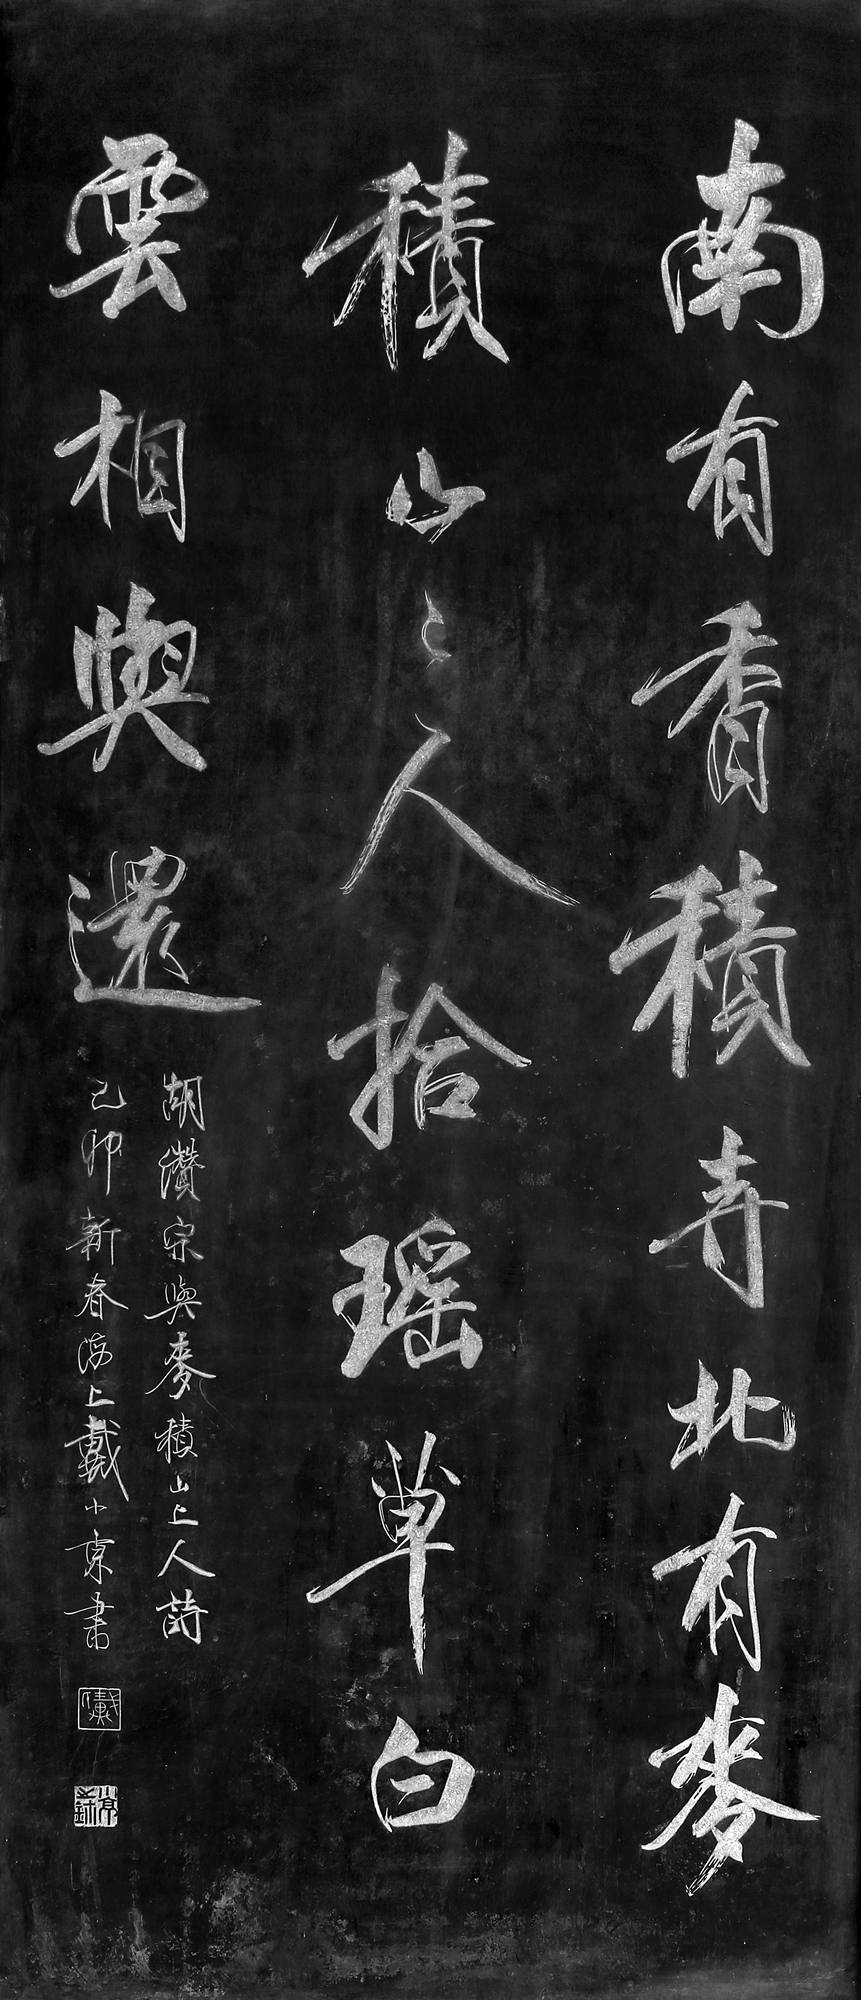 南有香積寺北有麥
積山〻人拾瑶草白
雲相與還
胡瓚宗與麥積山上人詩
己卯新春海上戴小京書